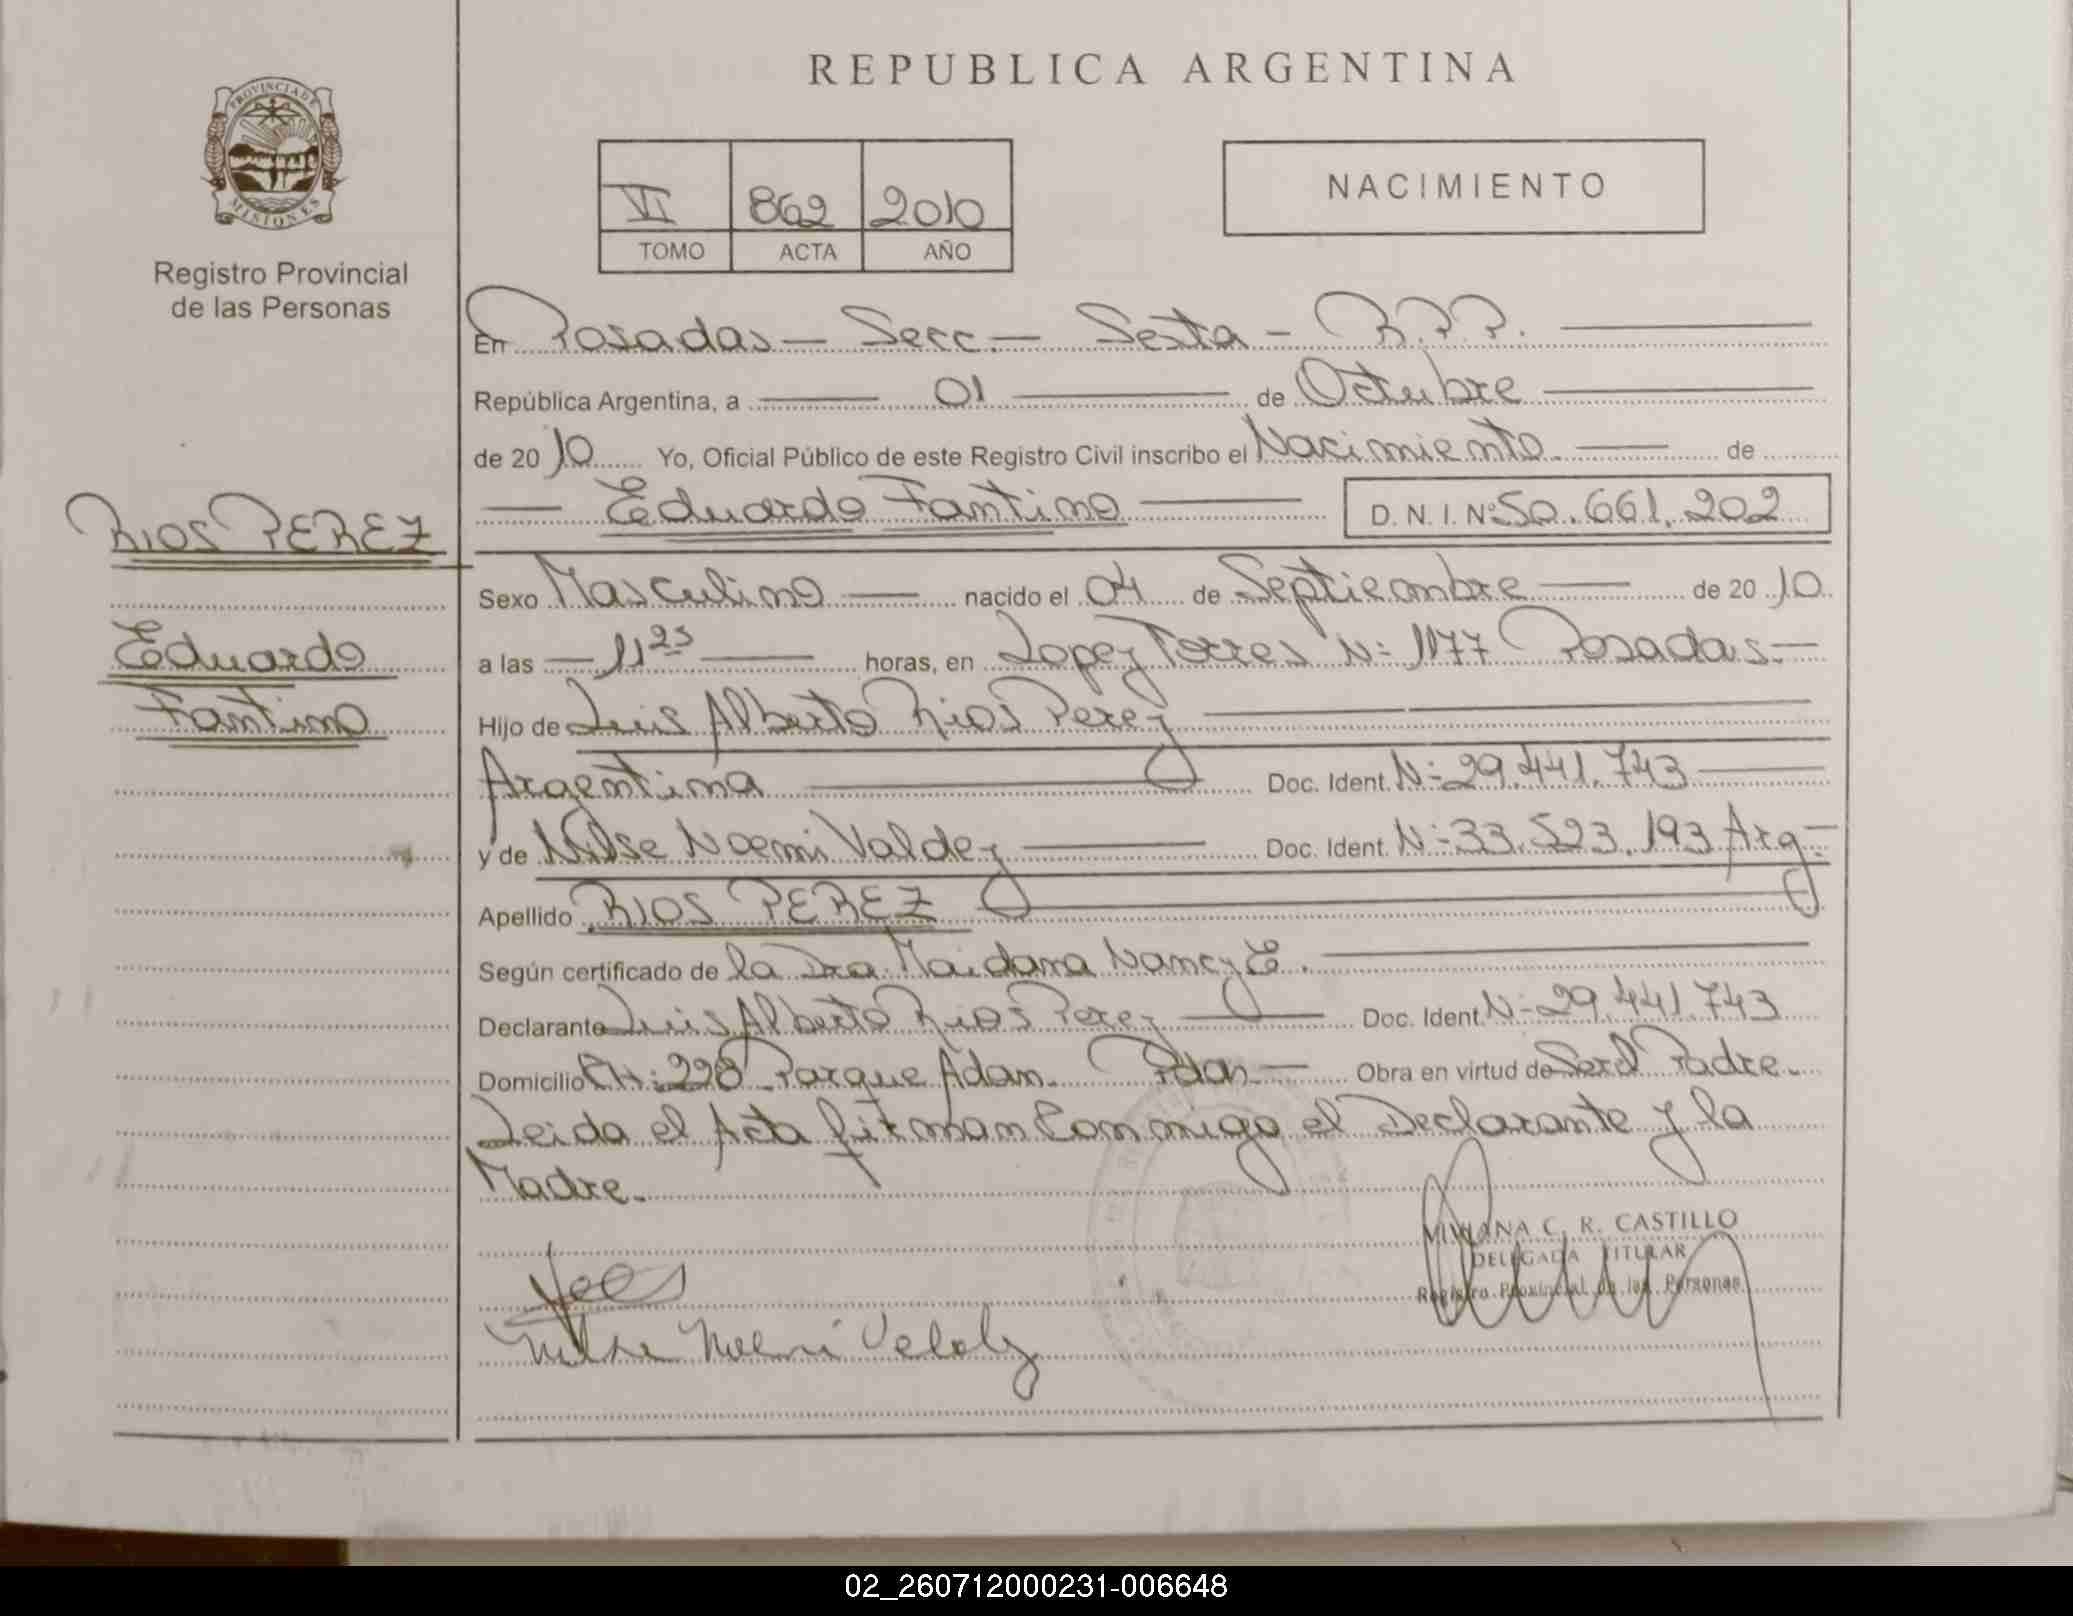 REPUBLICA ARGENTINA
PROVINCIA DE
MISIONES
Registro Provincial
de las Personas
VI 862 2010
TOMO ACTA AÑO
NACIMIENTO
En Posadas — Secc. — Sexta — R.P.P.
República Argentina, a 01 de Octubre
de 2010 Yo, Oficial Público de este Registro Civil inscribo el Nacimiento. de
Eduardo Fantino D.N.I. Nº 50.661.202
RIOS PEREZ
Eduardo
Fantino
Sexo Masculino nacido el 04 de Septiembre de 2010
a las 11 25 horas, en Lopez Torres Nº 1177 Posadas.
Hijo de Luis Alberto Rios Perez
Argentina Doc. Ident. Nº 29.441.743
y de Nilse Noemi Valdez Doc. Ident. Nº 33.523.193 Arg.
Apellido RIOS PEREZ
Según certificado de la Dra. Maidana Nancy E.
Declarante Luis Alberto Rios Perez Doc. Ident. Nº 29.441.743
Domicilio CH: 228 Parque Adam. Pdas. Obra en virtud de Ser el Padre.
Leida el Acta firman Conmigo el Declarante y la
Madre.
VIVIANA C. R. CASTILLO
DELEGADA TITULAR
Registro Provincial de las Personas
Nilse Noemi Valdez
02_260712000231-006648